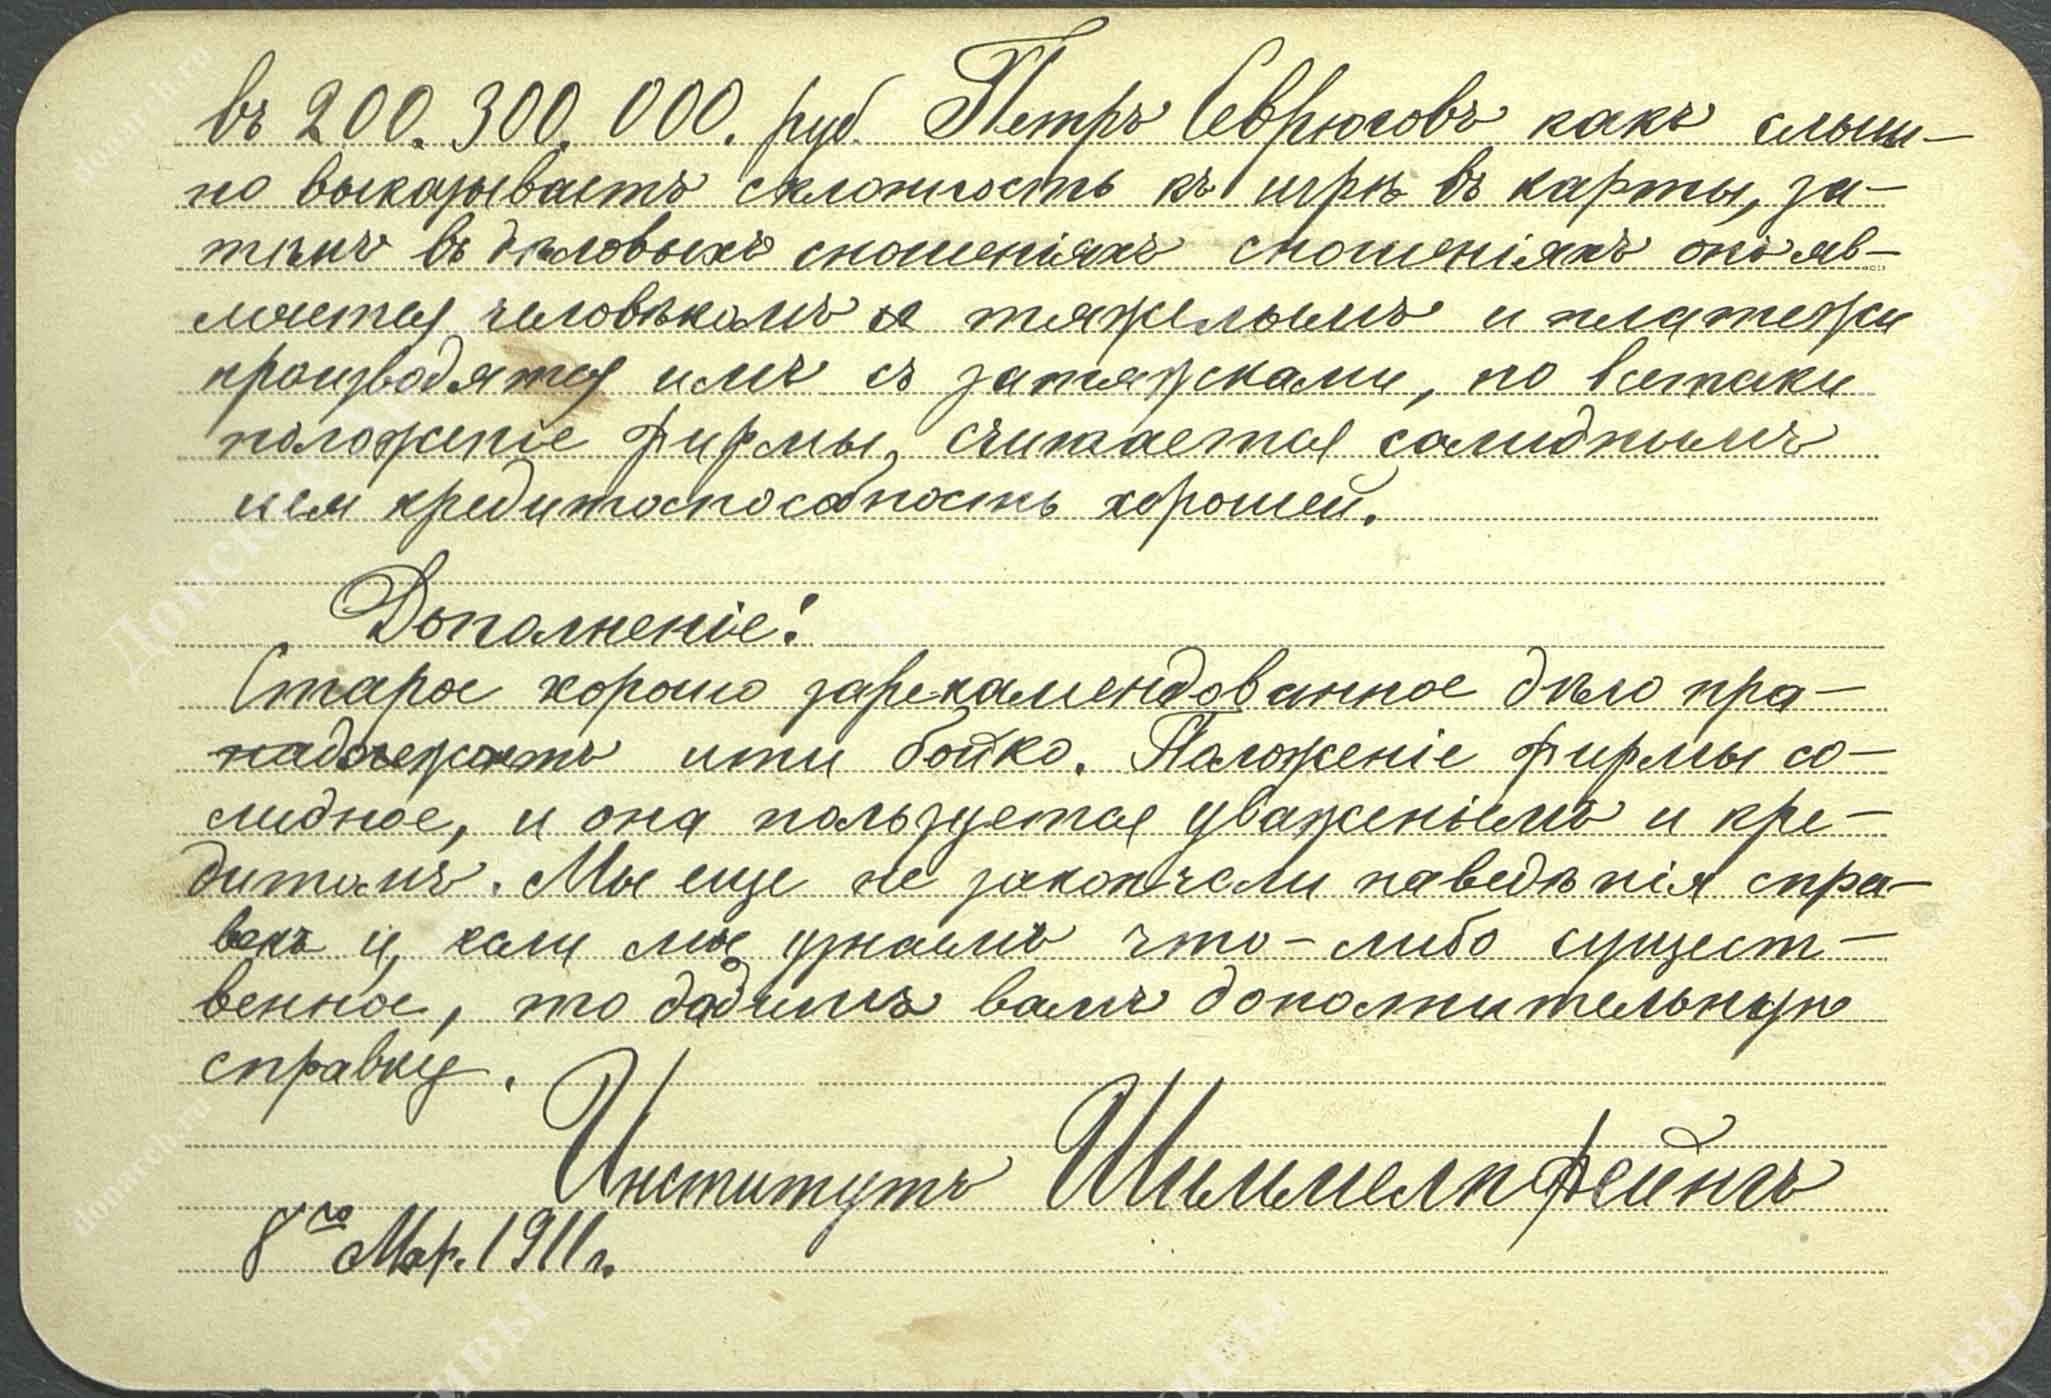 въ 200. 300. 000. руб. Петръ Севрюговъ какъ слыш-
но выказываетъ склонность къ игрѣ въ карты, за-
тѣмъ въ дѣловыхъ сношеніяхъ сношеніяхъ онъ яв-
ляется человѣкомъ тяжелымъ и платежи
производятся имъ съ затяжками, но всетаки
положеніе фирмы, считается солиднымъ
и ея кредитоспособность хорошей.
Дополненіе:
Старое хорошо зарекамендованное дѣло пра-
надлежитъ ити бойко. Положеніе фирмы со-
лидное, и она пользуется уваженіемъ и кре-
дитомъ. Мы еще не закончели наведѣнія спра-
векъ и, если мы узнаемъ что-либо сущест-
венное, то дадимъ вамъ дополнительную
справку.
Институтъ Шиммелпфейнгъ
8го Мар. 1911 г.
donarch.ru
donarch.ru